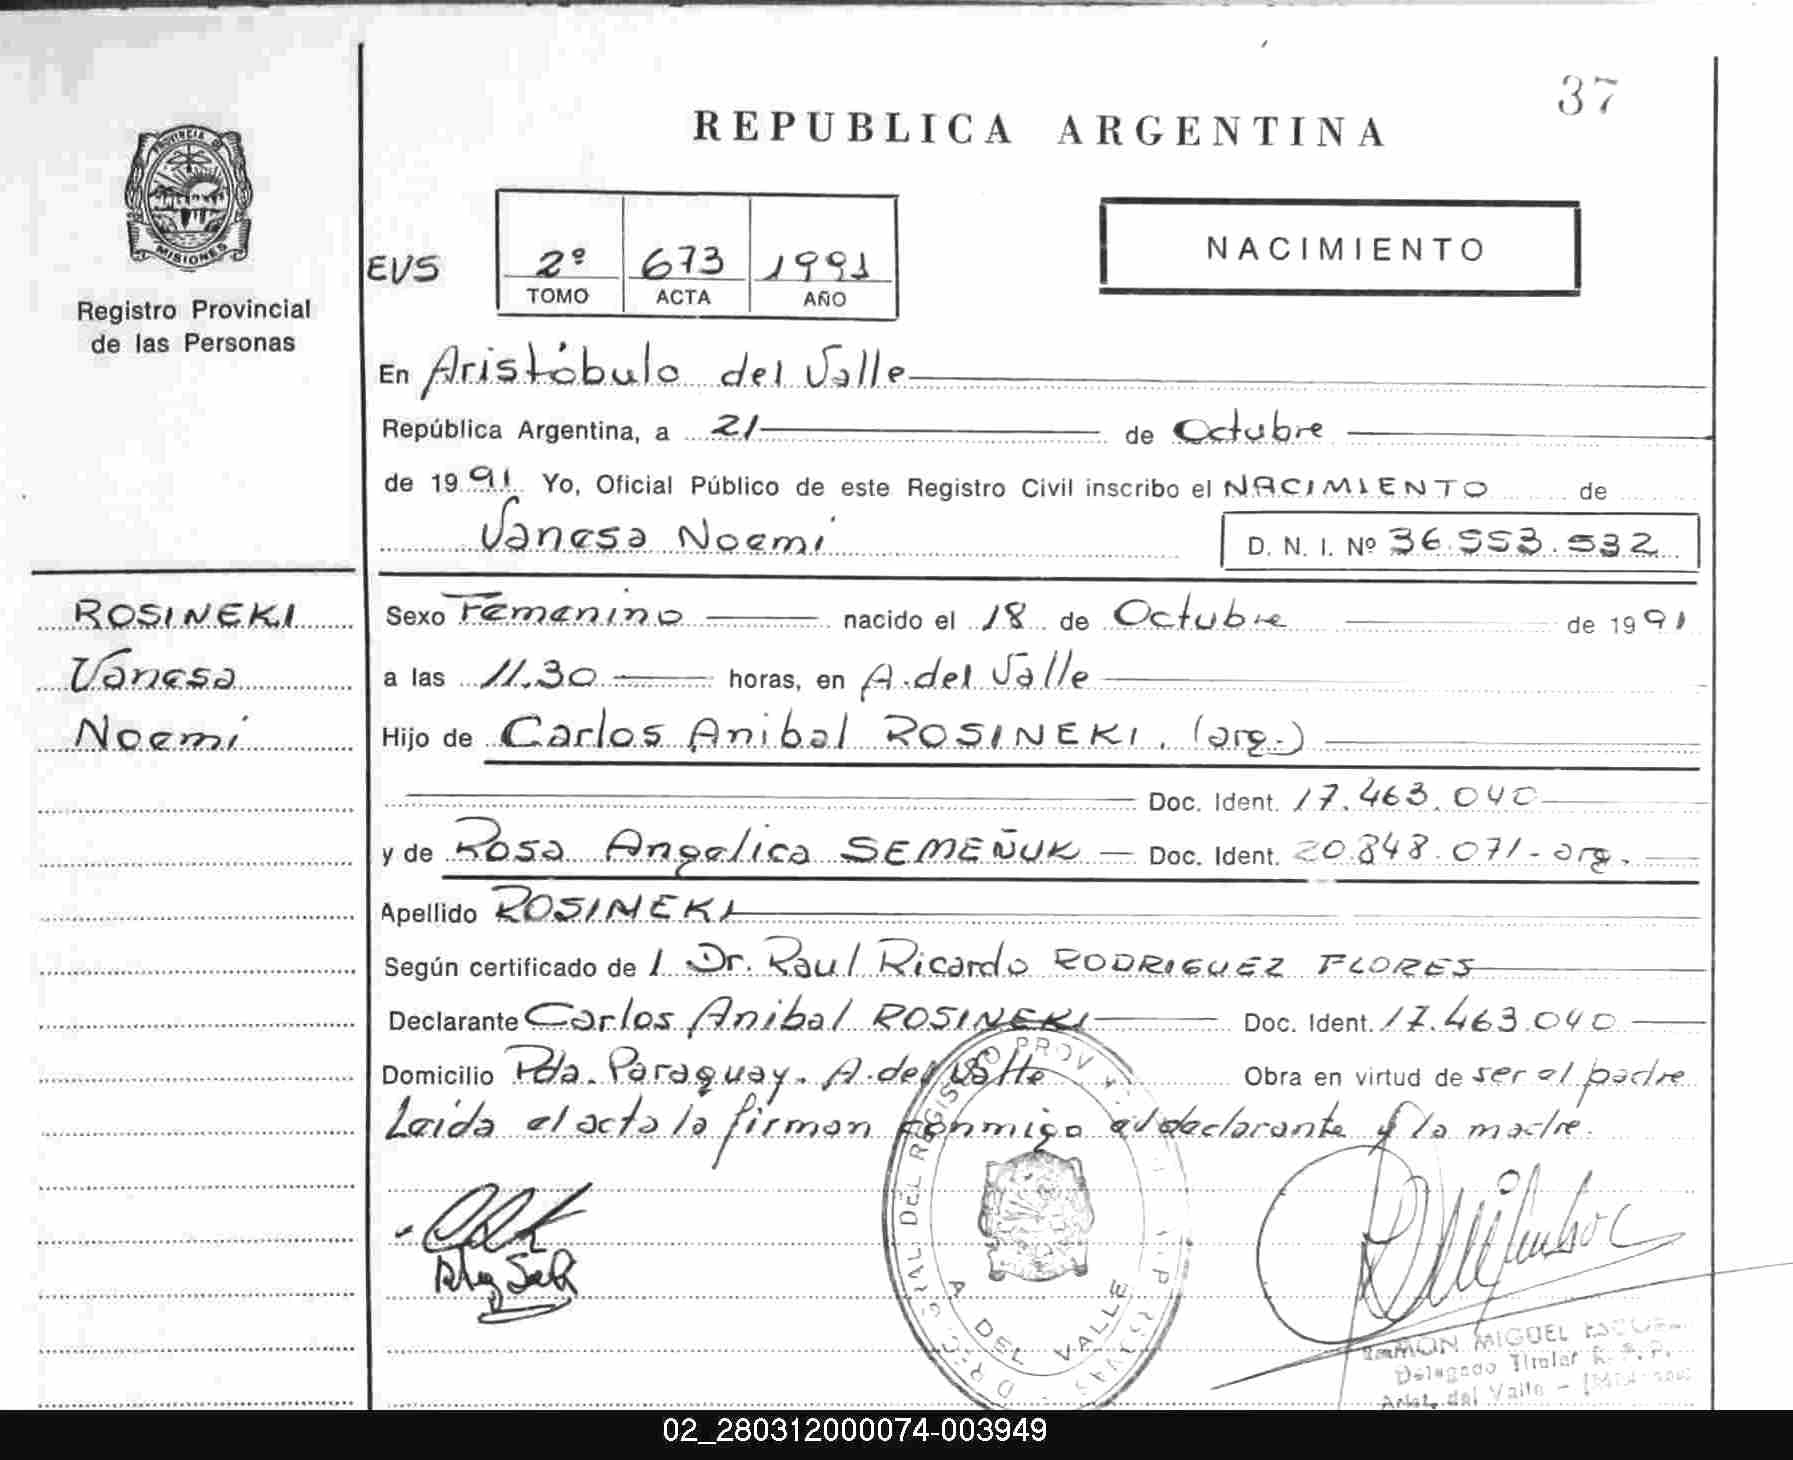 37
REPUBLICA ARGENTINA
PROVINCIA DE
MISIONES
Registro Provincial
de las Personas
EVS
2º 673 1991
TOMO ACTA AÑO
NACIMIENTO
En Aristóbulo del Valle
República Argentina, a 21 de Octubre
de 1991 Yo, Oficial Público de este Registro Civil inscribo el NACIMIENTO de
Vanesa Noemi D. N. I. Nº 36.553.532
ROSINEKI
Vanesa
Noemi
Sexo Femenino nacido el 18 de Octubre de 1991
a las 11.30 horas, en A. del Valle
Hijo de Carlos Anibal ROSINEKI. (arg.)
Doc. Ident. 17.463.040
y de Rosa Angelica SEMEÑUK — Doc. Ident. 20.848.071 - arg.
Apellido ROSINEKI
Según certificado de l Dr. Raul Ricardo RODRIGUEZ FLORES
Declarante Carlos Anibal ROSINEKI Doc. Ident. 17.463.040
Domicilio Pda. Paraguay. A. del Valle Obra en virtud de ser el padre
Leida el acta la firman conmigo el declarante y la madre.
DEL REGISTRO PROV
A DEL VALLE
RAMON MIGUEL
Delegado Titular R. P. P.
Arist. del Valle -
02_280312000074-003949